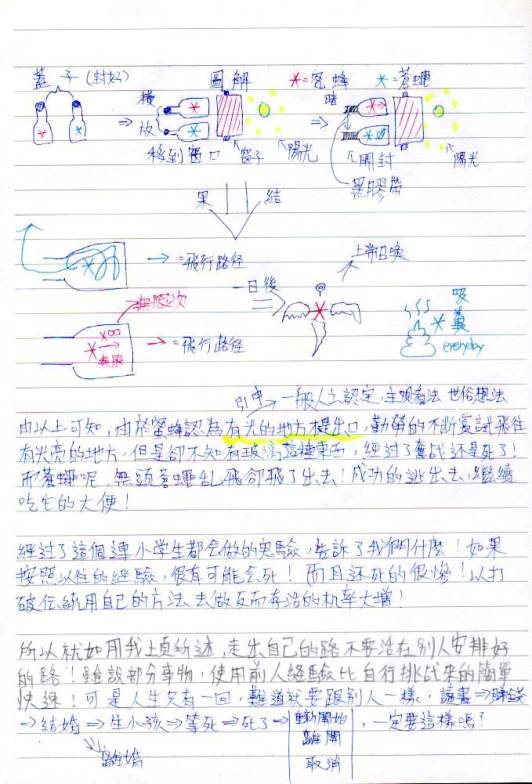 蓋子(封好)
圖解
*=蜜蜂 *=蒼蠅
橫放
暗
⇒移到窗口 窗子 陽光 ⇒ 開封 陽光
黑膠帶
結果
→=飛行路径
上帝召喚
無限次
一日後
吸糞
everyday
→=飛行路径
引申→一般人之認定,主观看法 世俗想法
由以上可知,由於蜜蜂認為有光的地方是出口,勤勞的不斷嘗試飛往
有光亮的地方,但是卻不知有玻璃這種東西,經过了奮战还是死了!
而蒼蠅呢,無頭蒼蠅乱飛卻飛了出去!成功的逃出去,繼續
吃它的大便!
經过了這個連小学生都会做的实驗,告訴了我們什麼!如果
按照以往的經驗,很有可能会死!而且还死的很慘!以打
破伝統用自己的方法去做反而存活的机率大增!
所以就如用我上頁所述,走出自己的路不要活在別人安排好
的路!雖說部分事物,使用前人經驗比自行挑战來的簡單
快速!可是人生只有一回,難道就要跟別人一樣,讀書⇒賺錢
⇒結婚⇒生小孩⇒等死⇒死了⇒ ,一定要這樣嗎?
離婚
重新開始
離開
取消